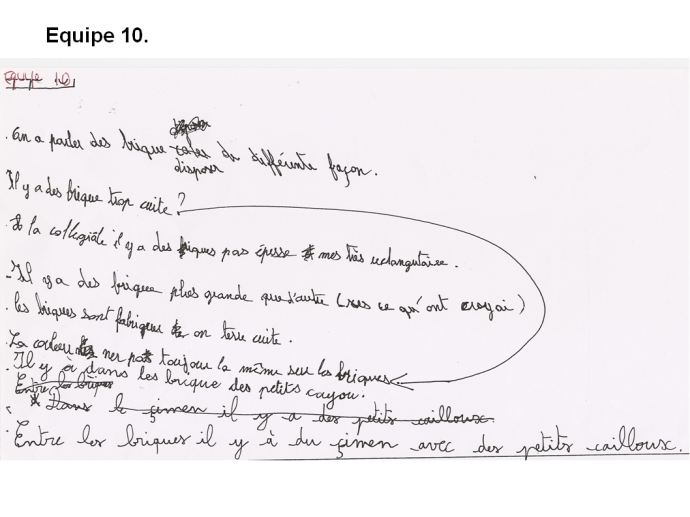 Equipe 10.
Equipe 10
. On a parler des brique disposer du différente façon.
Il y a des brique trop cuite ?
à la collégiale il y a des briques pas épesse mes très rectangulaire.
- Il y a des brique plus grande que d'autre ( ce qu'ont croyai )
. les briques sont fabriquer en terre cuite.
. La couleur ner pas toujour la même sur les briques
. Il y à dans les brique des petits cayou.
Entre les briques
* Dans le çimen il y a des petits cailloux.
. Entre les briques il y à du çimen avec des petits cailloux.